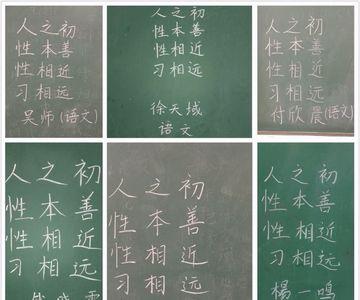 人之初
性本善
性相近
习相远
吴师(语文)
人之初
性本善
性相近
习相远
徐天域
语文
人之初
性本善
性相近
习相远
付欣晨(语文)
人之初
性本善
性相近
习相远
人之初
性本善
性相近
习相远
人之初
性本善
性相近
习相远
楊一鸣